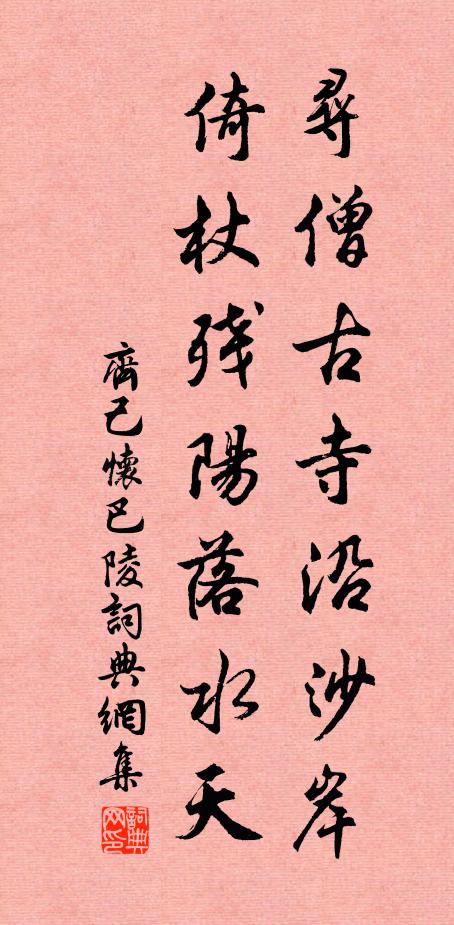 尋僧古寺沿沙岸
倚杖殘陽落水天
齊己懷巴陵詞典網集
詞典网印